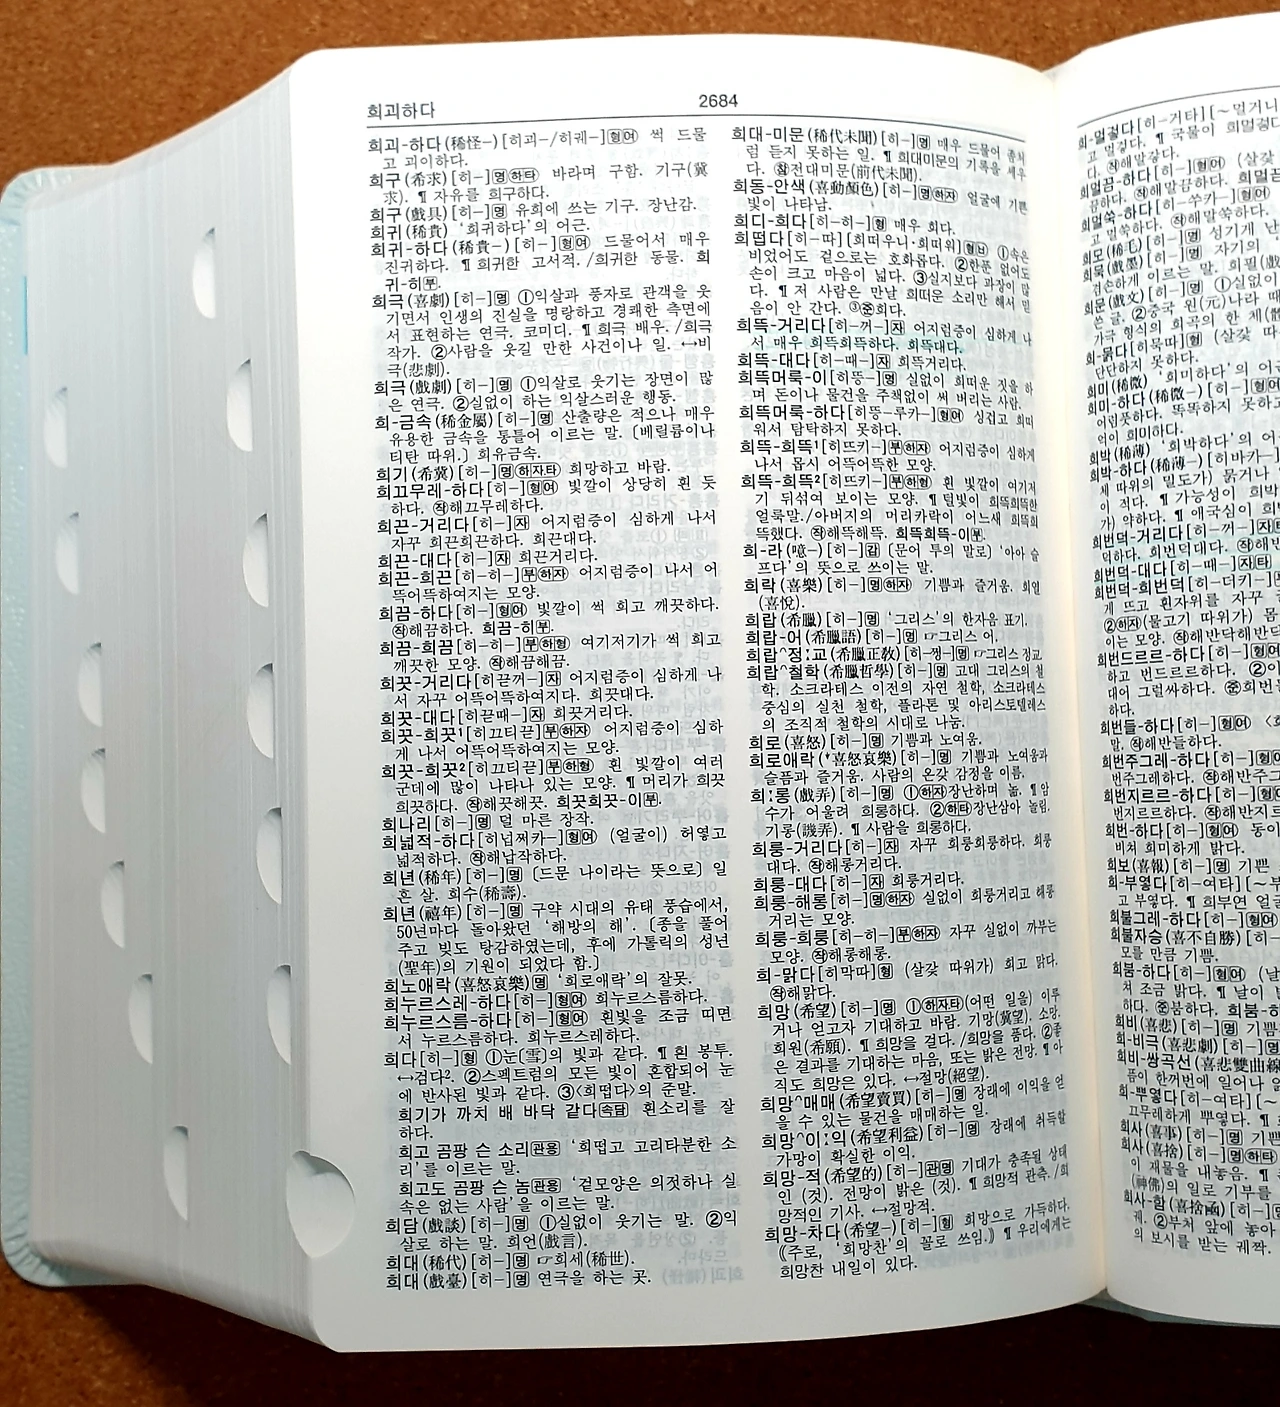 희괴하다
2684
희괴-하다(稀怪-)[히괴-/히궤-]형여 썩 드물
고 괴이하다.
희구(希求)[히-]명하타 바라며 구함. 기구(冀
求). ¶자유를 희구하다.
희구(戲具)[히-]명 유희에 쓰는 기구. 장난감.
희귀(稀貴) '희귀하다'의 어근.
희귀-하다(稀貴-)[히-]형여 드물어서 매우
진귀하다. ¶희귀한 고서적./희귀한 동물. 희
귀-히부.
희극(喜劇)[히-]명 ①익살과 풍자로 관객을 웃
기면서 인생의 진실을 명랑하고 경쾌한 측면에
서 표현하는 연극. 코미디. ¶희극 배우./희극
작가. ②사람을 웃길 만한 사건이나 일. ↔비
극(悲劇).
희극(戲劇)[히-]명 ①익살로 웃기는 장면이 많
은 연극. ②실없이 하는 익살스러운 행동.
희-금속(稀金屬)[히-]명 산출량은 적으나 매우
유용한 금속을 통틀어 이르는 말. 〔베릴륨이나
티탄 따위.〕 희유금속.
희기(希冀)[히-]명하자타 희망하고 바람.
희끄무레-하다[히-]형여 빛깔이 상당히 흰 듯
하다. 작해끄무레하다.
희끈-거리다[히-]자 어지럼증이 심하게 나서
자꾸 희끈희끈하다. 희끈대다.
희끈-대다[히-]자 희끈거리다.
희끈-희끈[히-히-]부하자 어지럼증이 나서 어
뜩어뜩하여지는 모양.
희끔-하다[히-]형여 빛깔이 썩 희고 깨끗하다.
작해끔하다. 희끔-히부.
희끔-희끔[히-히-]부하형 여기저기가 썩 희고
깨끗한 모양. 작해끔해끔.
희끗-거리다[히끋꺼-]자 어지럼증이 심하게 나
서 자꾸 어뜩어뜩하여지다. 희끗대다.
희끗-대다[히끋때-]자 희끗거리다.
희끗-희끗¹[히끄티끋]부하자 어지럼증이 심하
게 나서 어뜩어뜩하여지는 모양.
희끗-희끗²[히끄티끋]부하형 흰 빛깔이 여러
군데에 많이 나타나 있는 모양. ¶머리가 희끗
희끗하다. 작해끗해끗. 희끗희끗-이부.
희나리[히-]명 덜 마른 장작.
희넓적-하다[히넙쩌카-]형여 (얼굴이) 허옇고
넓적하다. 작해납작하다.
희년(稀年)[히-]명 [드문 나이라는 뜻으로] 일
흔 살. 희수(稀壽).
희년(禧年)[히-]명 구약 시대의 유태 풍습에서,
50년마다 돌아왔던 '해방의 해'. 〔종을 풀어
주고 빚도 탕감하였는데, 후에 가톨릭의 성년
(聖年)의 기원이 되었다 함.〕
희노애락(喜怒哀樂)명 '희로애락'의 잘못.
희누르스레-하다[히-]형여 희누르스름하다.
희누르스름-하다[히-]형여 흰빛을 조금 띠면
서 누르스름하다. 희누르스레하다.
희다[히-]형 ①눈(雪)의 빛과 같다. ¶흰 봉투.
↔검다². ②스펙트럼의 모든 빛이 혼합되어 눈
에 반사된 빛과 같다. ③〈희떱다〉의 준말.
희기가 까치 배 바닥 같다속담 흰소리를 잘
하다.
희고 곰팡 슨 소리관용 '희떱고 고리타분한 소
리'를 이르는 말.
희고도 곰팡 슨 놈관용 '겉모양은 의젓하나 실
속은 없는 사람'을 이르는 말.
희담(戲談)[히-]명 ①실없이 웃기는 말. ②익
살로 하는 말. 희언(戲言).
희대(稀代)[히-]명 ☞희세(稀世).
희대(戲臺)[히-]명 연극을 하는 곳.
희대-미문(稀代未聞)[히-]명 매우 드물어 좀처
럼 듣지 못하는 일. ¶희대미문의 기록을 세우
다. 참전대미문(前代未聞).
희동-안색(喜動顏色)[히-]명하자 얼굴에 기쁜
빛이 나타남.
희디-희다[히-히-]형 매우 희다.
희떱다[히-따][희떠우니·희떠워]형ㅂ ①속은
비었어도 겉으로는 호화롭다. ②한푼 없어도
손이 크고 마음이 넓다. ③실지보다 과장이 많
다. ¶저 사람은 만날 희떠운 소리만 해서 믿
음이 안 간다. ③준희다.
희뜩-거리다[히-꺼-]자 어지럼증이 심하게 나
서 매우 희뜩희뜩하다. 희뜩대다.
희뜩-대다[히-때-]자 희뜩거리다.
희뜩머룩-이[히뜽-]명 실없이 희떠운 짓을 하
며 돈이나 물건을 주책없이 써 버리는 사람.
희뜩머룩-하다[히뜽-루카-]형여 싱겁고 희떠
워서 탐탁하지 못하다.
희뜩-희뜩¹[히뜨키-]부하자 어지럼증이 심하게
나서 몹시 어뜩어뜩한 모양.
희뜩-희뜩²[히뜨키-]부하형 흰 빛깔이 여기저
기 뒤섞여 보이는 모양. ¶털빛이 희뜩희뜩한
얼룩말./아버지의 머리카락이 어느새 희뜩희
뜩했다. 작해뜩해뜩. 희뜩희뜩-이부.
희-라(噫-)[히-]감 [문어 투의 말로] '아아 슬
프다'의 뜻으로 쓰이는 말.
희락(喜樂)[히-]명하자 기쁨과 즐거움. 희열
(喜悅).
희랍(希臘)[히-]명 '그리스'의 한자음 표기.
희랍-어(希臘語)[히-]명 ☞그리스 어.
희랍^정ː교(希臘正敎)[히-쩡-]명 ☞그리스 정교.
희랍^철학(希臘哲學)[히-]명 고대 그리스의 철
학. 소크라테스 이전의 자연 철학, 소크라테스
중심의 실천 철학, 플라톤 및 아리스토텔레스
의 조직적 철학의 시대로 나눔.
희로(喜怒)[히-]명 기쁨과 노여움.
희로애락(*喜怒哀樂)[히-]명 기쁨과 노여움과
슬픔과 즐거움. 사람의 온갖 감정을 이름.
희ː롱(戲弄)[히-]명 ①하자장난하며 놂. ¶암
수가 어울려 희롱하다. ②하타장난삼아 놀림.
기롱(譏弄). ¶사람을 희롱하다.
희룽-거리다[히-]자 자꾸 희룽희룽하다. 희룽
대다. 작해롱거리다.
희룽-대다[히-]자 희룽거리다.
희룽-해롱[히-]명하자 실없이 희룽거리고 해롱
거리는 모양.
희룽-희룽[히-히-]부하자 자꾸 실없이 까부는
모양. 작해롱해롱.
희-맑다[히막따]형 (살갗 따위가) 희고 맑다.
작해맑다.
희망(希望)[히-]명 ①하자타(어떤 일을) 이루
거나 얻고자 기대하고 바람. 기망(冀望). 소망.
희원(希願). ¶희망을 걸다./희망을 품다. ②좋
은 결과를 기대하는 마음, 또는 밝은 전망. ¶아
직도 희망은 있다. ↔절망(絕望).
희망^매매(希望賣買)[히-]명 장래에 이익을 얻
을 수 있는 물건을 매매하는 일.
희망^이ː익(希望利益)[히-]명 장래에 취득할
가망이 확실한 이익.
희망-적(希望的)[히-]관명 기대가 충족될 상태
인 (것). 전망이 밝은 (것). ¶희망적 관측./희
망적인 기사. ↔절망적.
희망-차다(希望-)[히-]형 희망으로 가득하다.
《주로, '희망찬'의 꼴로 쓰임.》 ¶우리에게는
희망찬 내일이 있다.
희-멀겋다[히-거타][~멀거니
고 멀겋다. ¶국물이 희멀겋다
다. 작해말갛다.
희멀끔-하다[히-]형여 (살갗
끔하다. 작해말끔하다. 희멀끔
희멀쑥-하다[히-쑤카-]형여
고 멀쑥하다. 작해말쑥하다.
희모(稀毛)[히-]명 성기게 난
희묵(戲墨)[히-]명 자기의
겸손하게 이르는 말. 희필(戲
희문(戲文)[히-]명 ①실없이
쓴 글. ②중국 원(元)나라 때
가극 형식의 희곡의 한 체(體
희-묽다[히묵따]형 (살갗 따
단단하지 못하다.
희미(稀微) '희미하다'의 어근
희미-하다(稀微-)[히-]형여
어렴풋하다. 똑똑하지 못하고
억이 희미하다.
희박(稀薄) '희박하다'의 어
희박-하다(稀薄-)[히바카-]
체 따위의 밀도가) 묽거나
이 적다. ¶가능성이 희박
가) 약하다. ¶애국심이 희박
희번덕-거리다[히-꺼-]자타
덕하다. 희번덕대다. 작해반
희번덕-대다[히-때-]자타
희번덕-희번덕[히-더키-]
게 뜨고 흰자위를 자꾸
②하자(물고기 따위가) 몸
이는 모양. 작해반닥해반닥
희번드르르-하다[히-]형여
하고 번드르르하다. ②이
대어 그럴싸하다. 준희번
하다.
희번들-하다[히-]형여 〈희
말. 작해반들하다.
희번주그레-하다[히-]형여
번주그레하다. 작해반주그
희번지르르-하다[히-]형여
번지르르하다. 작해반지르
희번-하다[히-]형여 동이
비쳐 희미하게 밝다.
희보(喜報)[히-]명 기쁜
희-부옇다[히-여타][~부
고 부옇다. ¶희부연 얼굴
희불그레-하다[히-]형여
희불자승(喜不自勝)[히-
모를 만큼 기쁨.
희붐-하다[히-]형여 (날
쳐 조금 밝다. ¶날이 밝
하다. 준붐하다. 희붐-히
희비(喜悲)[히-]명 기쁨
희-비극(喜悲劇)[히-]명
희비-쌍곡선(喜悲雙曲線
픔이 한꺼번에 일어나 얽
희-뿌옇다[히-여타][~
고무레하게 뿌옇다. ¶희
희사(喜事)[히-]명 기쁜
희사(喜捨)[히-]명하타
이 재물을 내놓음. ¶
(神佛)의 일로 기부를
희사-함(喜捨函)[히-]명
궤. ②부처 앞에 놓아
의 보시를 받는 궤짝.